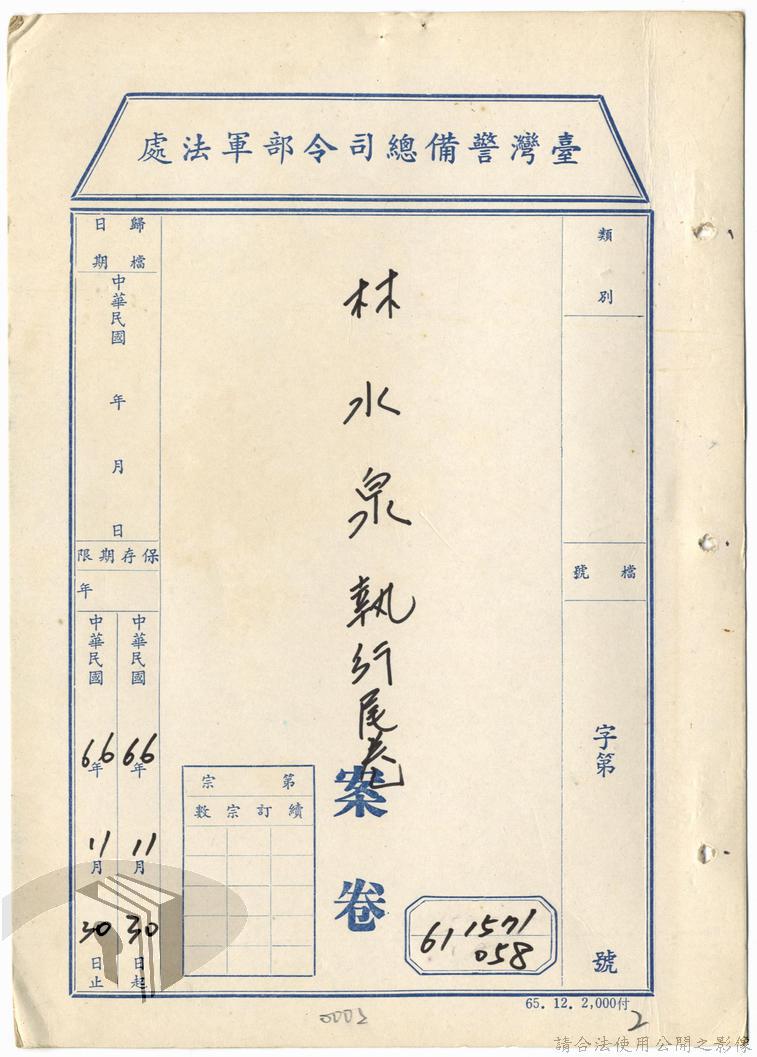 臺灣警備總司令部軍法處
類別
檔號
字第
號
林水泉執行尾卷
案卷
第宗
續訂宗數
61 1571
058
歸檔日期
中華民國 年 月 日
保存期限
年
中華民國 66年 11月 30日起
中華民國 66年 11月 30日止
65. 12. 2,000付
0002
2
請合法使用公開之影像